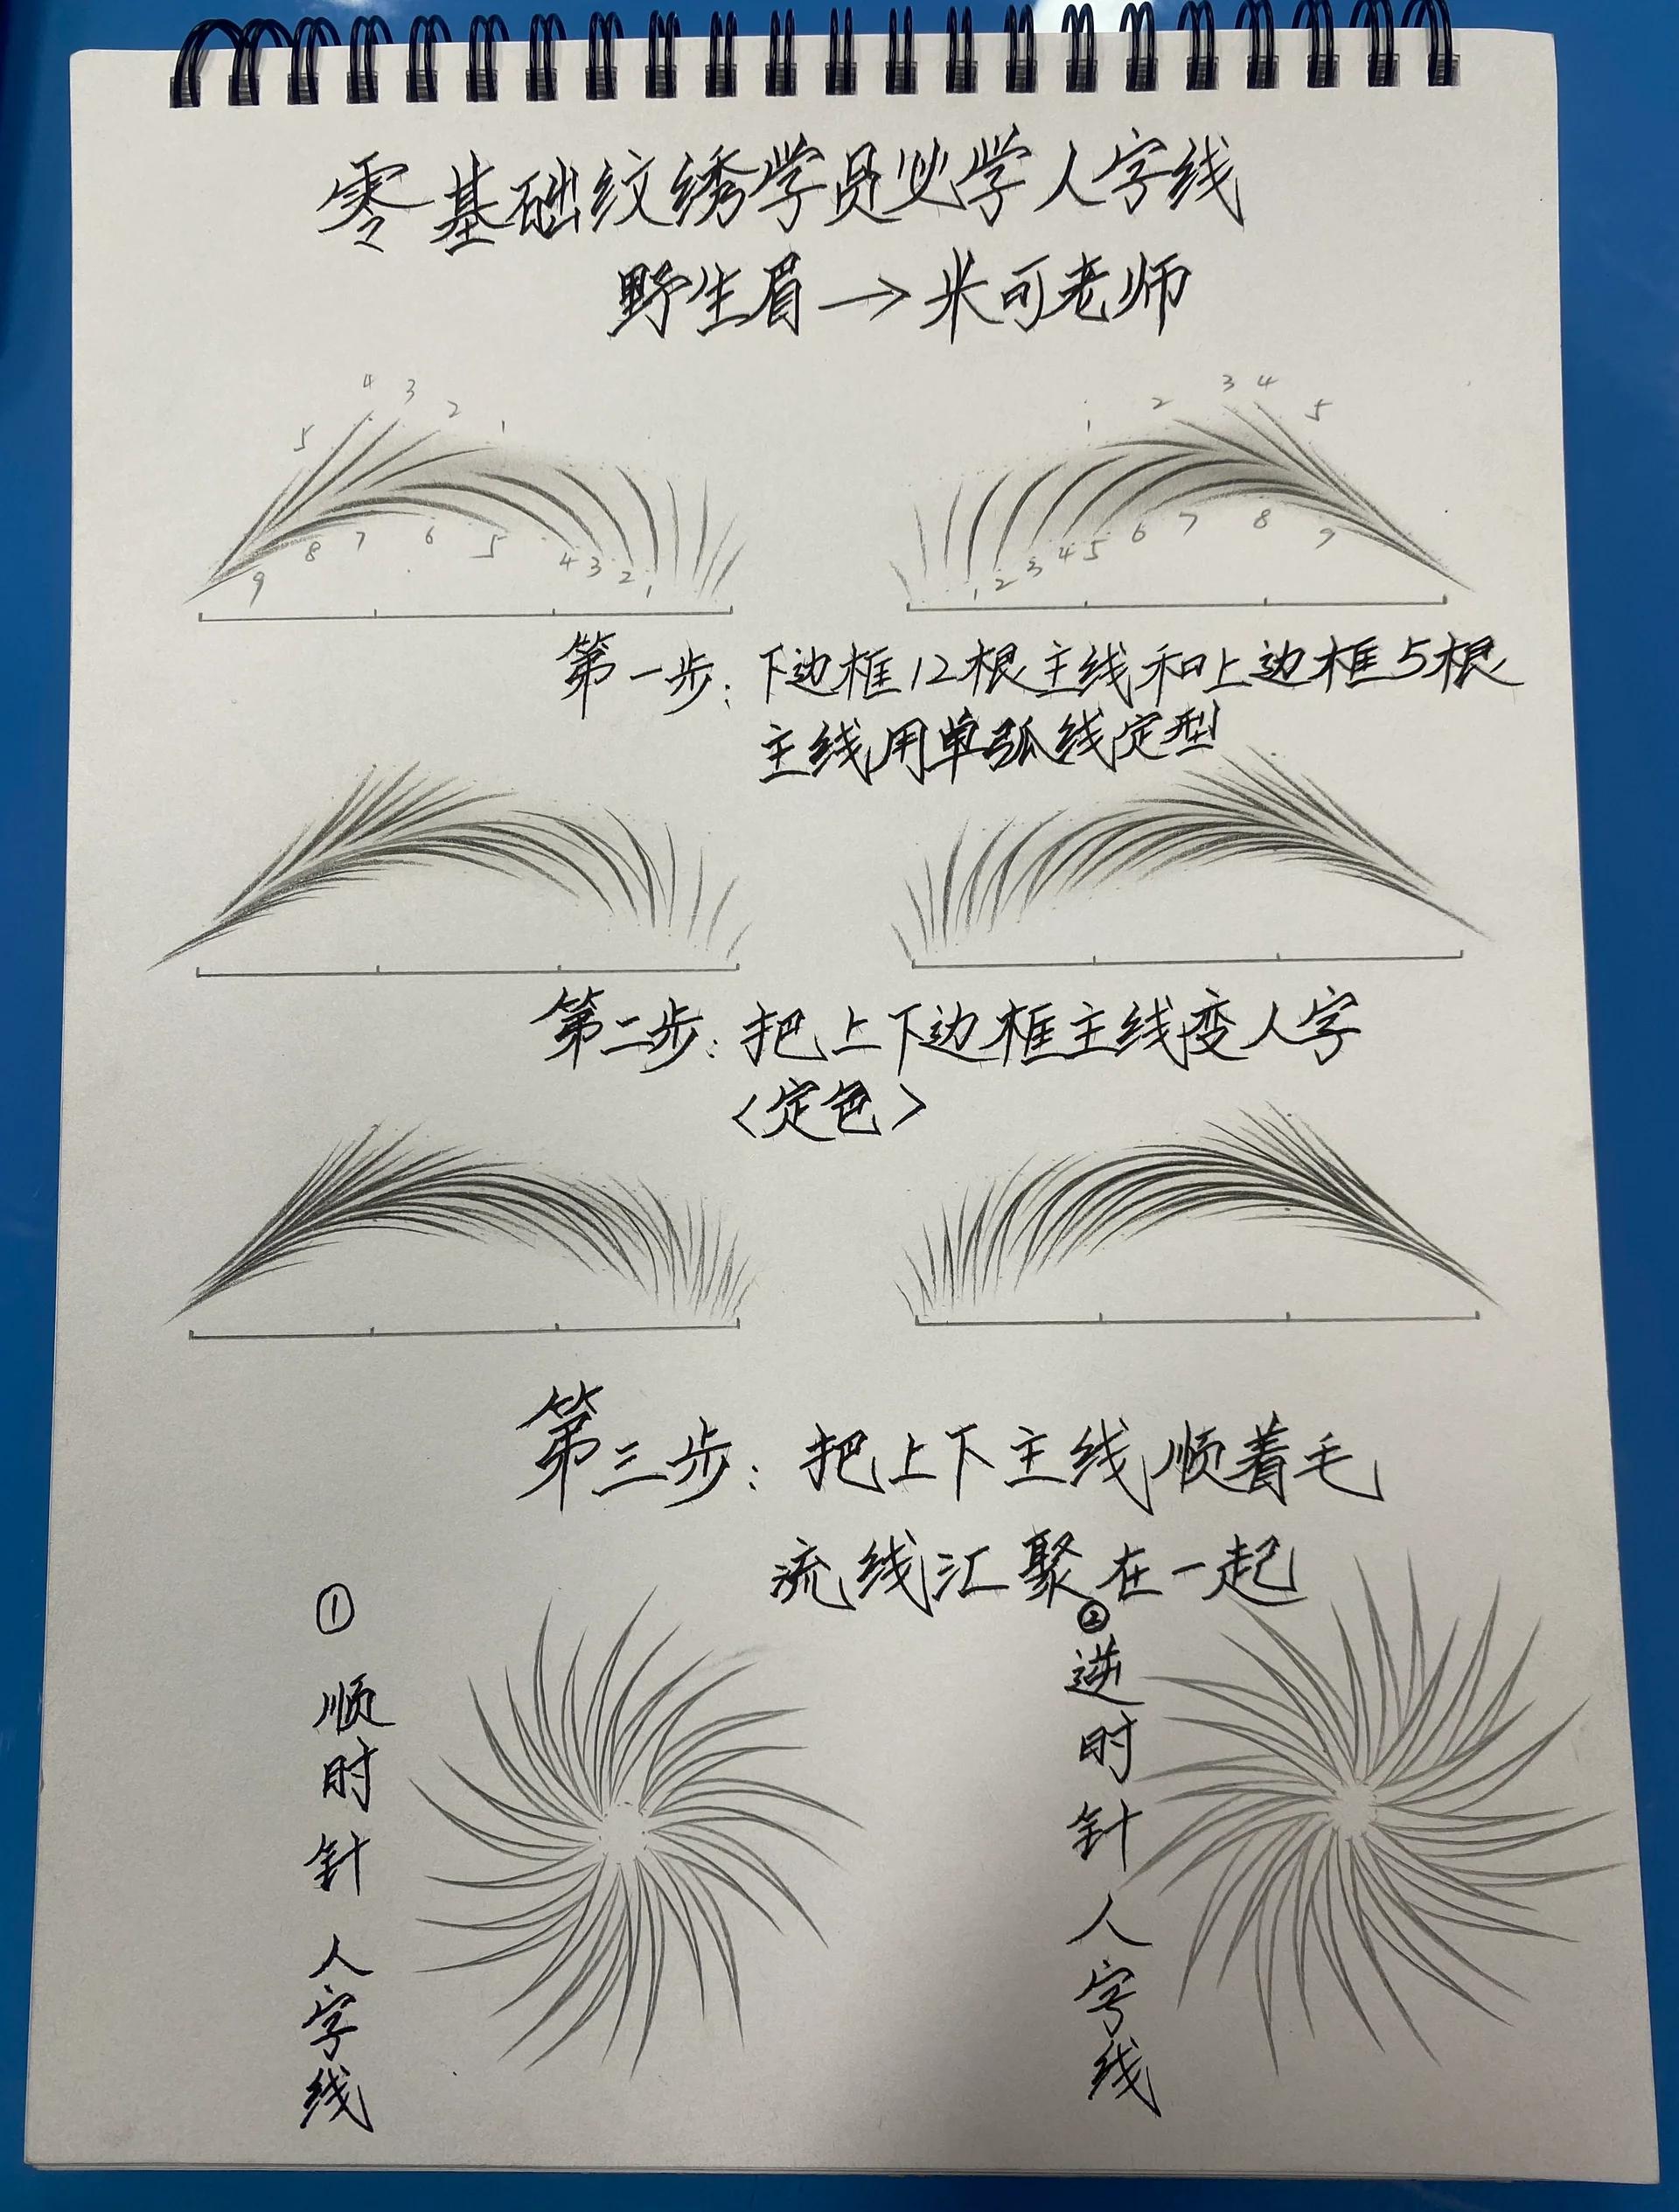 零基础纹绣学员必学人字线
野生眉→米可老师
4 3 2 1 5
1 2 3 4 5
9 8 7 6 5 4 3 2 1
1 2 3 4 5 6 7 8 9
第一步：下边框12根主线和上边框5根
主线用单弧线定型
第二步：把上下边框主线变人字
<定色>
第三步：把上下主线顺着毛
流线汇聚在一起
① 顺时针人字线
② 逆时针人字线